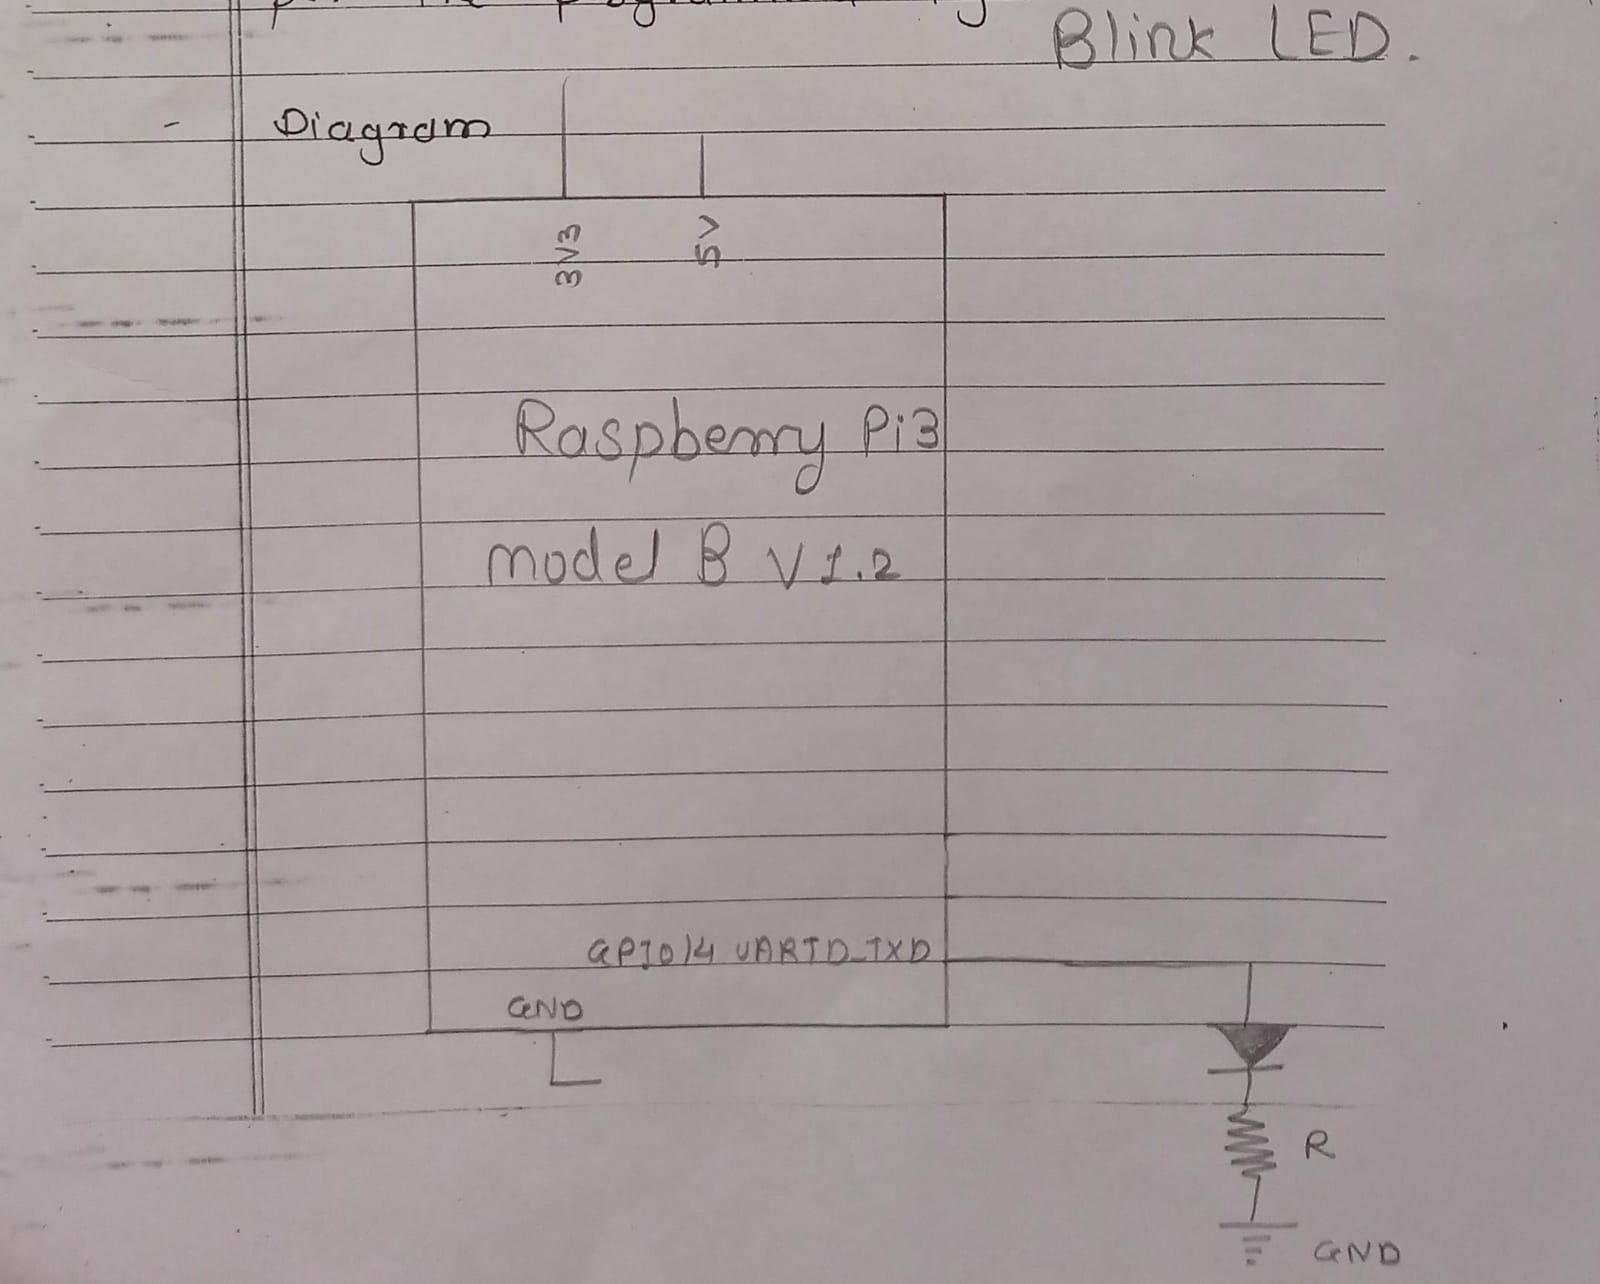 Blink LED.
- Diagram
3V3
5V
Raspberry Pi3
model B V1.2
GPIO14 UART0_TXD
GND
R
GND